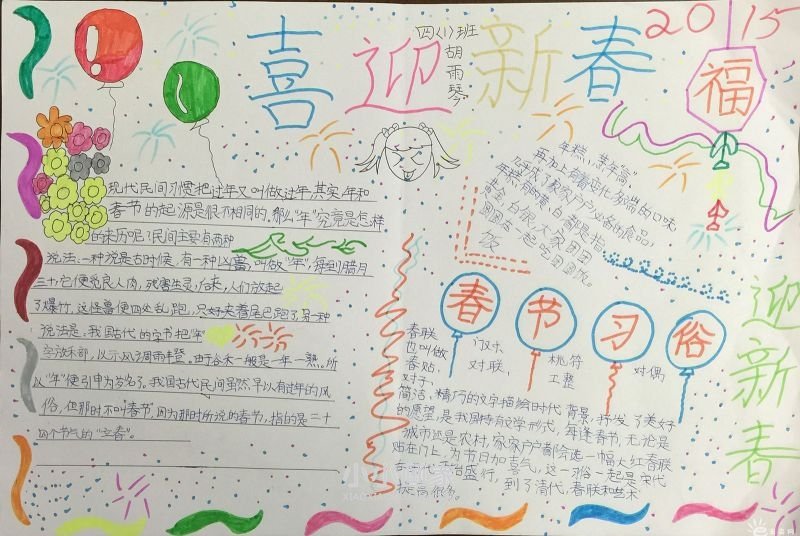 喜迎新春
2015
四(1)班
胡雨琴
福
现代民间习惯把过年又叫做过年,其实,年和
春节的起源是很不相同的,那么"年"究竟是怎样
的来历呢?民间主要有两种
说法:一种说是古时候,有一种凶兽,叫做"年",每到腊月
三十,它便觅食人肉,残害生灵,后来,人们放起
了爆竹,这怪兽便四处乱跑,只好夹着尾巴跑了,另一种
说法是,我国古代的字书把"年"
字放禾部,以示风调雨丰登。由于谷禾一般是一年一熟。所
以"年"便引申为岁名了。我国古代民间虽然早以有过年的风
俗,但那时不叫春节,因为那时所说的春节,指的是二十
四个节气的"立春"。
年糕,某"年高,
再加上有着变化多端的口味,
几乎成了家家户户必备的食品,
年糕有的黄,白都是指
黄金,白银,大家团团
圆圆在一起吃团圆
饭
饭。
春节习俗
春联 门对、 桃符 对偶
也叫做 对联、 工整
春贴、
对子,
简洁,精巧的文字描绘时代背景,抒发了美好
的愿望,是我国特有文学形式,每逢春节,无论是
城市还是农村,家家户户都会选一幅大红春联
贴在门上,为节日加喜气,这一习俗起是宋代
在明代 始盛行,到了清代,春联和艺术
提高很多。
迎新春